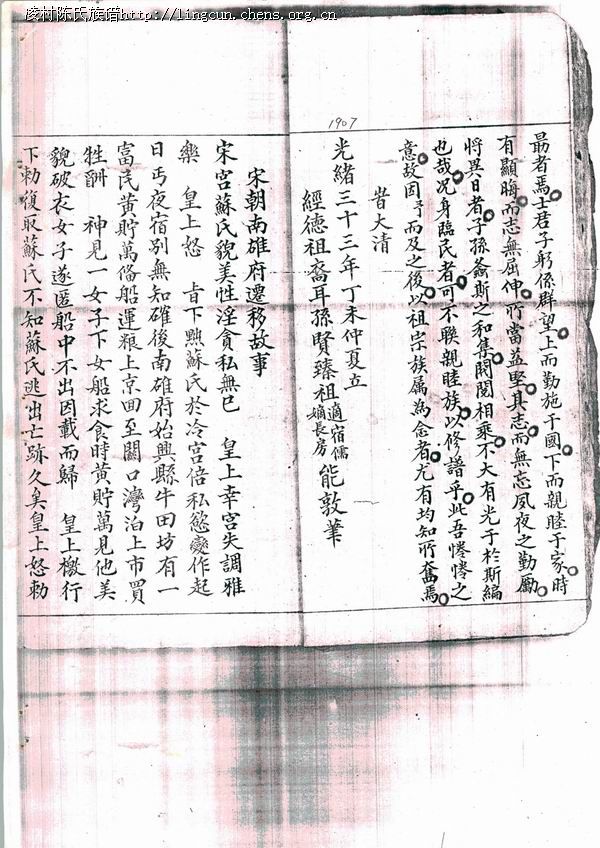 凌村陈氏族谱http://lingcun.chens.org.cn
1907
最者焉士君子躬係群望上而勤施于國下而親睦于家時
有顯晦而志無屈伸所當益堅其志而無忘夙夜之勤勵
將異日者子孫螽斯之和集閥閱相乘不大有光于於斯編
也哉况身臨民者可不聯親睦族以修譜乎此吾惓惓之
意故因予而及之後以祖宗族属為念者尤有均知所奮焉
旹大清
光緒三十三年丁未仲夏立
經德祖裔耳孫賢臻祖適宿儒嫡長房能敦筆
宋朝南雄府遷移故事
宋宫蘇氏貌美性淫貪私無已 皇上幸宫失調雅
樂 皇上怒 旨下㸃蘇氏於冷宫倍私慾變作起
日丐夜宿别無知確後南雄府始興縣牛田坊有一
富民黄貯萬俻船運粮上京囬至關口灣泊上市買
牲酬 神見一女子下女船求食時黄貯萬見他美
貌破衣女子遂匿船中不出因載而歸 皇上檄行
下勅復取蘇氏不知蘇氏逃出亡跡久矣皇上怒勅